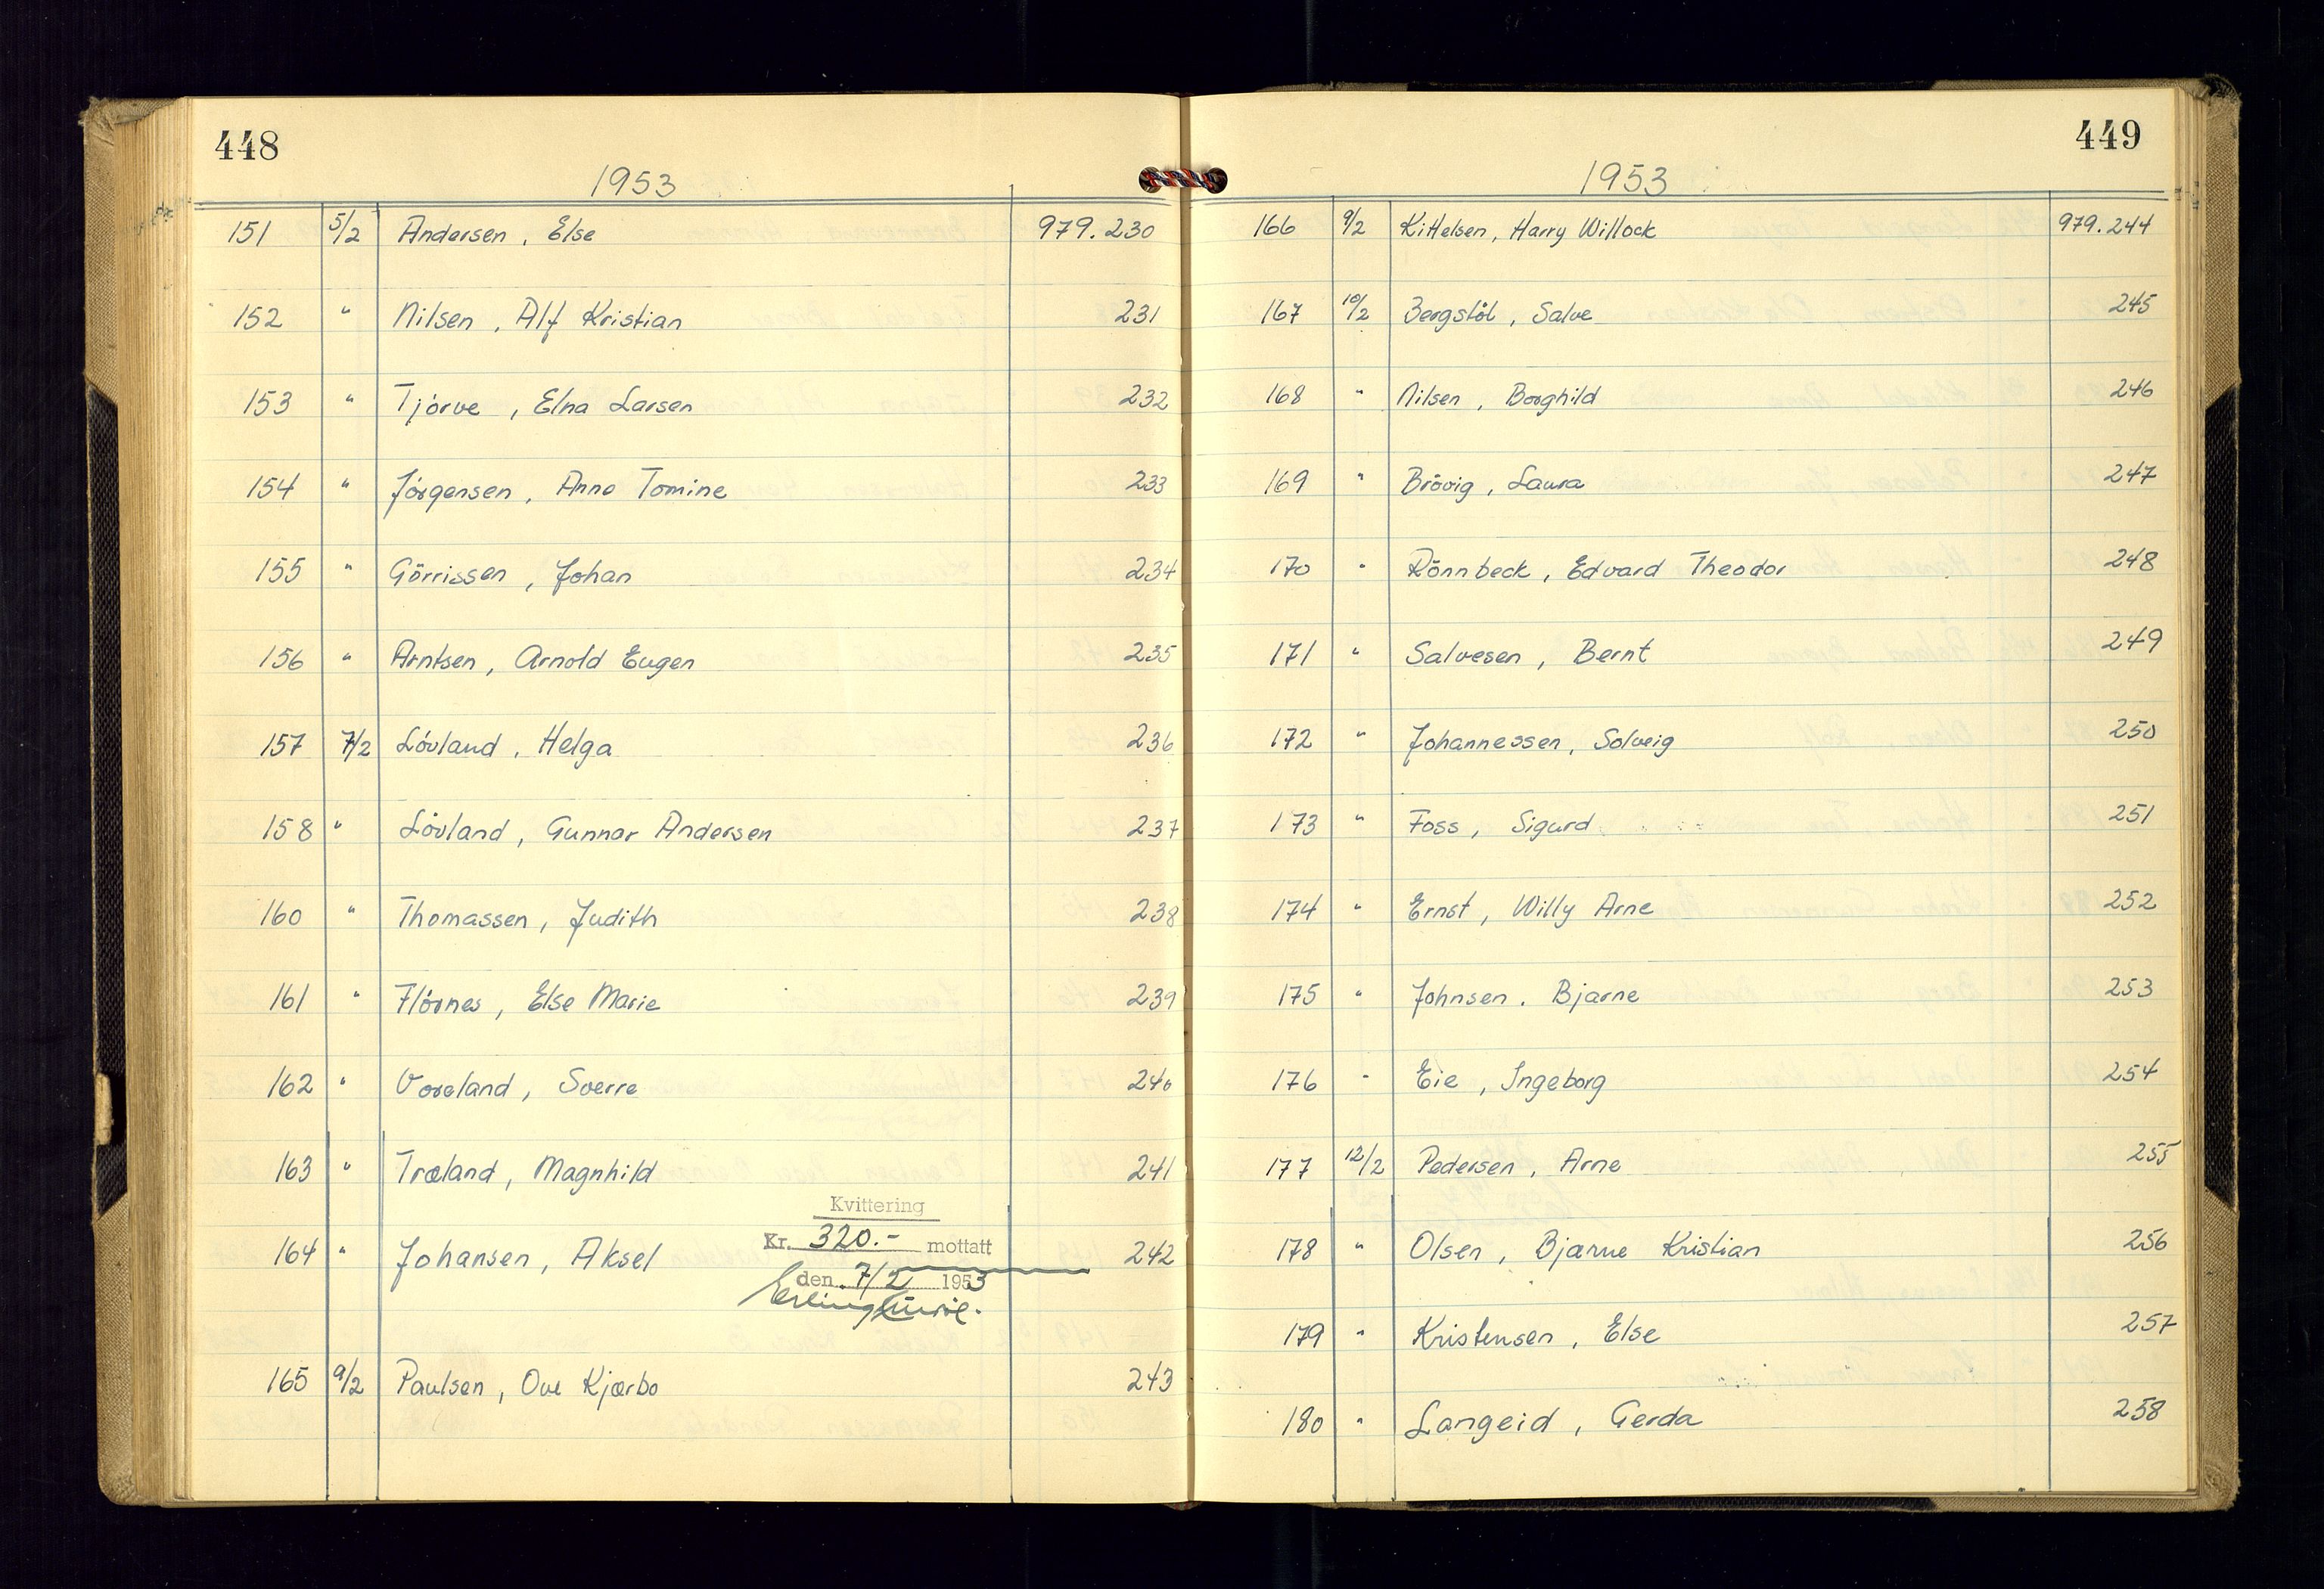 448
1953
151 5/2 Andersen, Else 979.230
152 " Nilsen, Alf Kristian 231
153 " Tjörve, Elna Larsen 232
154 " Jörgensen, Anne Tomine 233
155 " Görrissen, Johan 234
156 " Arntsen, Arnold Eugen 235
157 7/2 Lövland, Helga 236
158 " Lövland, Gunnar Andersen 237
160 " Thomassen, Judith 238
161 " Flörnes, Else Marie 239
162 " Voreland, Sverre 240
163 " Træland, Magnhild 241
Kvittering
Kr. 320.- mottatt
164 " Johansen, Aksel 242
den 7/2 1953
Erling
165 9/2 Paulsen, Ove Kjærbo 243
449
1953
166 9/2 Kittelsen, Harry Willock 979.244
167 10/2 Bergstöl, Salve 245
168 " Nilsen, Borghild 246
169 " Brövig, Laura 247
170 " Rönnbeck, Edvard Theodor 248
171 " Salvesen, Bernt 249
172 " Johannessen, Solveig 250
173 " Foss, Sigurd 251
174 " Ernst, Willy Arne 252
175 " Johnsen, Bjarne 253
176 " Eie, Ingeborg 254
177 12/2 Pedersen, Arne 255
178 " Olsen, Bjarne Kristian 256
179 " Kristensen, Else 257
180 " Langeid, Gerda 258